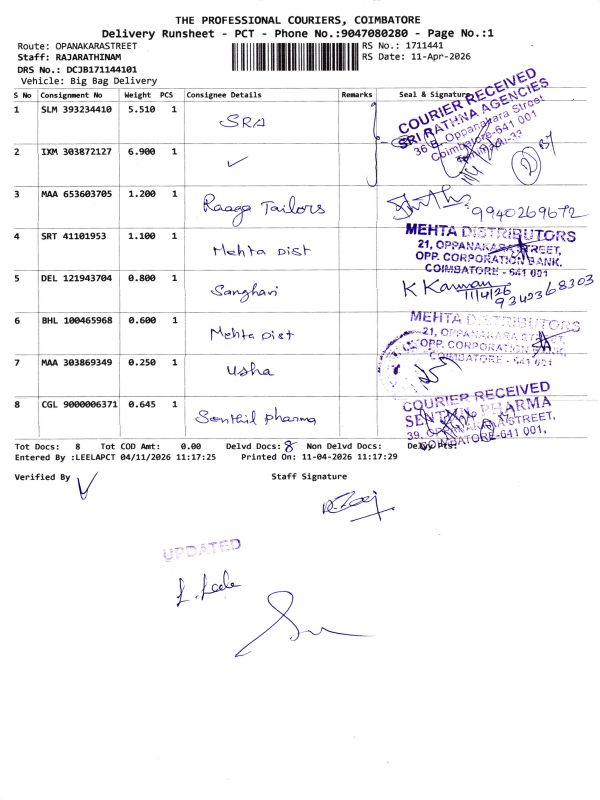 THE PROFESSIONAL COURIERS, COIMBATORE
Delivery Runsheet - PCT - Phone No.:9047080280 - Page No.:1
Route: OPANAKARASTREET
RS No.: 1711441
Staff: RAJARATHINAM
RS Date: 11-Apr-2026
DRS No.: DCJB171144101
Vehicle: Big Bag Delivery
S No Consignment No Weight PCS Consignee Details Remarks Seal & Signature
1 SLM 393234410 5.510 1 SRA
COURIER RECEIVED
SRI RATHNA AGENCIES
36 B, Oppanakara Street
Coimbatore-641 001
2 IXM 303872127 6.900 1
3 MAA 653603705 1.200 1 Raaga Tailors 9940269672
4 SRT 41101953 1.100 1 Mehta Dist
MEHTA DISTRIBUTORS
21, OPPANAKARA STREET,
OPP. CORPORATION BANK,
COIMBATORE - 641 001
5 DEL 121943704 0.800 1 Sanghavi K Kannan
11/4/26
9342368303
6 BHL 100465968 0.600 1 Mehta Dist
MEHTA DISTRIBUTORS
21, OPPANAKARA STREET,
OPP. CORPORATION BANK,
COIMBATORE - 641 001
7 MAA 303869349 0.250 1 Usha
8 CGL 9000006371 0.645 1 Senthil pharma
COURIER RECEIVED
SENTHIL PHARMA
39, OPPANAKARA STREET,
COIMBATORE-641 001.
Tot Docs: 8 Tot COD Amt: 0.00 Delvd Docs: 8 Non Delvd Docs: Delvy Pts:
Entered By :LEELAPCT 04/11/2026 11:17:25 Printed On: 11-04-2026 11:17:29
Verified By Staff Signature
UPDATED
L. Leela